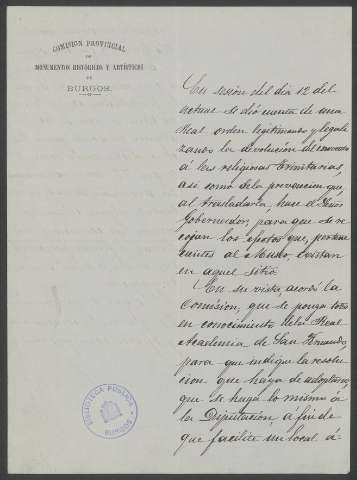 COMISION PROVINCIAL
DE
MONUMENTOS HISTÓRICOS Y ARTÍSTICOS
DE
BURGOS.
En sesión del dia 12 del
actual se dió cuenta de una
Real orden legitimando y legali
zando la devolución del
á las religiosas Trinitarias,
asi como de la prevencion que,
al trasladarla, hace el Señor
Gobernador, para que se re
cojan los efectos que, pertene
cientes al Museo, existan
en aquel sitio.
En su vista, acordó la
Comision, que se ponga todo
en conocimiento de la Real
Academia de San Fernando,
para que indique la resolu
cion que haya de adoptarse;
que se haga lo mismo á
la Diputación, á fin de
que facilite un local á-
BIBLIOTECA PÚBLICA
BURGOS